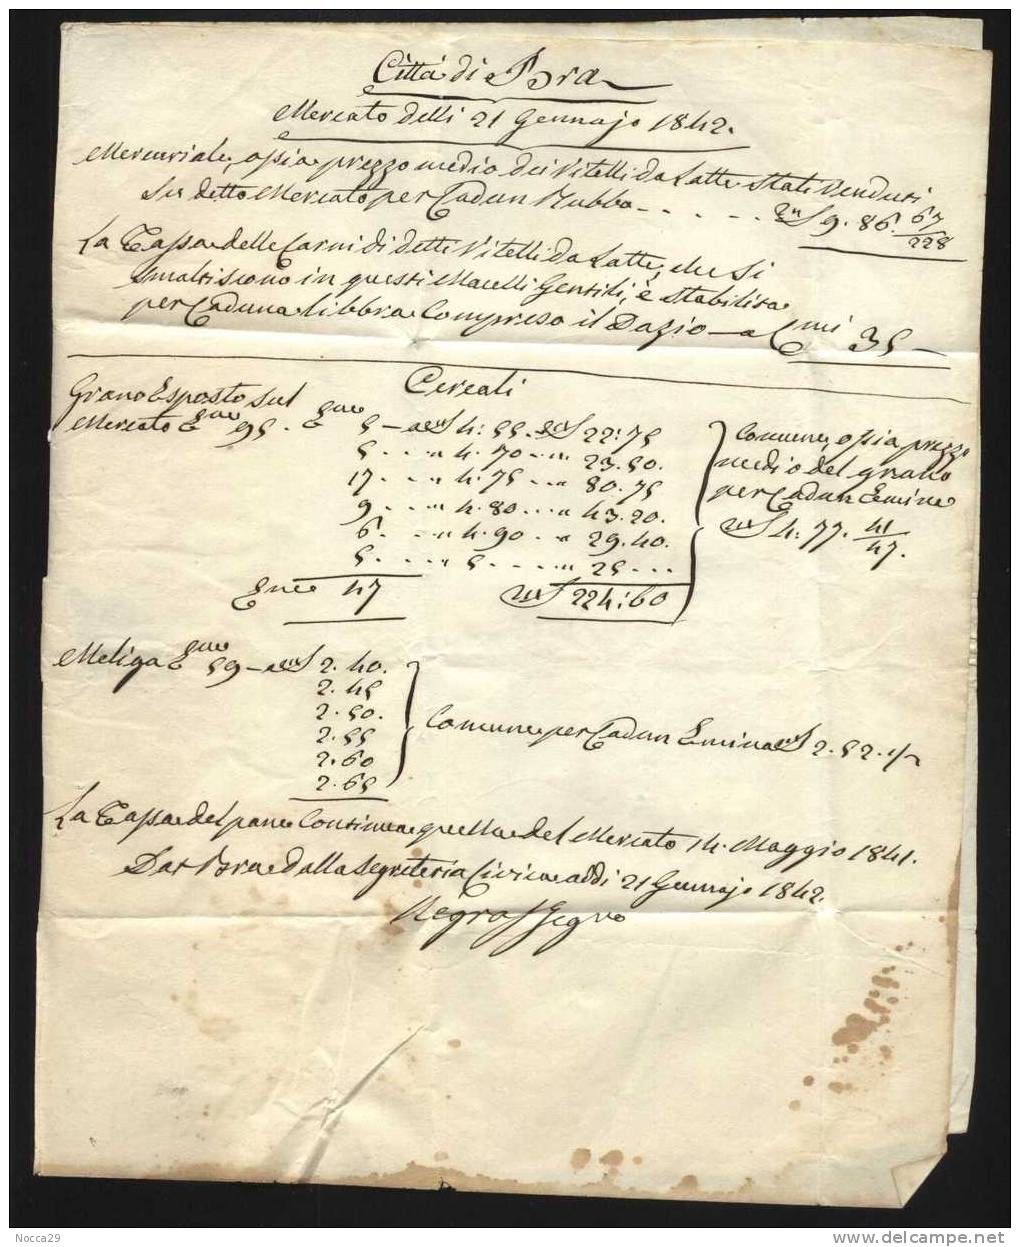 Città di Bra
Mercato delli 21 Gennajo 1842.
Mercuriale, ossia prezzo medio dei Vitelli da Latte stati venduti
su detto Mercato per Cadun Rubbo - . . . . - 9. 86. 67/228
La Tassa delle Carni di detti Vitelli da Latte, che si
smaltiscono in questi Macelli Gentili, è stabilita
per Caduna libbra Compreso il Dazio - a C.mi 35 -
Cereali
Grano Esposto sul
Mercato Emne 95 - Emne 5 - a 4: 55. 22: 75
5 . . . " 4. 70 . . . " 23. 50.
17 . . . " 4. 75 . . . " 80. 75
9 . . . " 4. 80 . . . " 43. 20.
6. . . " 4. 90 . . " 29. 40.
5 . . . . " 5 . . . . " 25 . . .
Emne 47 224: 60
Comune, ossia prezzo
medio del grano
per Cadun Emine
4. 77. 41/47.
Meliga Emne 59 - a 2. 40.
2. 45
2. 50.
2. 55
2. 60
2. 65
Comune per Cadun Emina 2. 52. 1/2
La Tassa del pane Continua quella del Mercato 14. Maggio 1841.
Dat Bra dalla Segreteria Civica addì 21 Gennajo 1842.
Negro Segro
Nocca29
www.delcampe.net